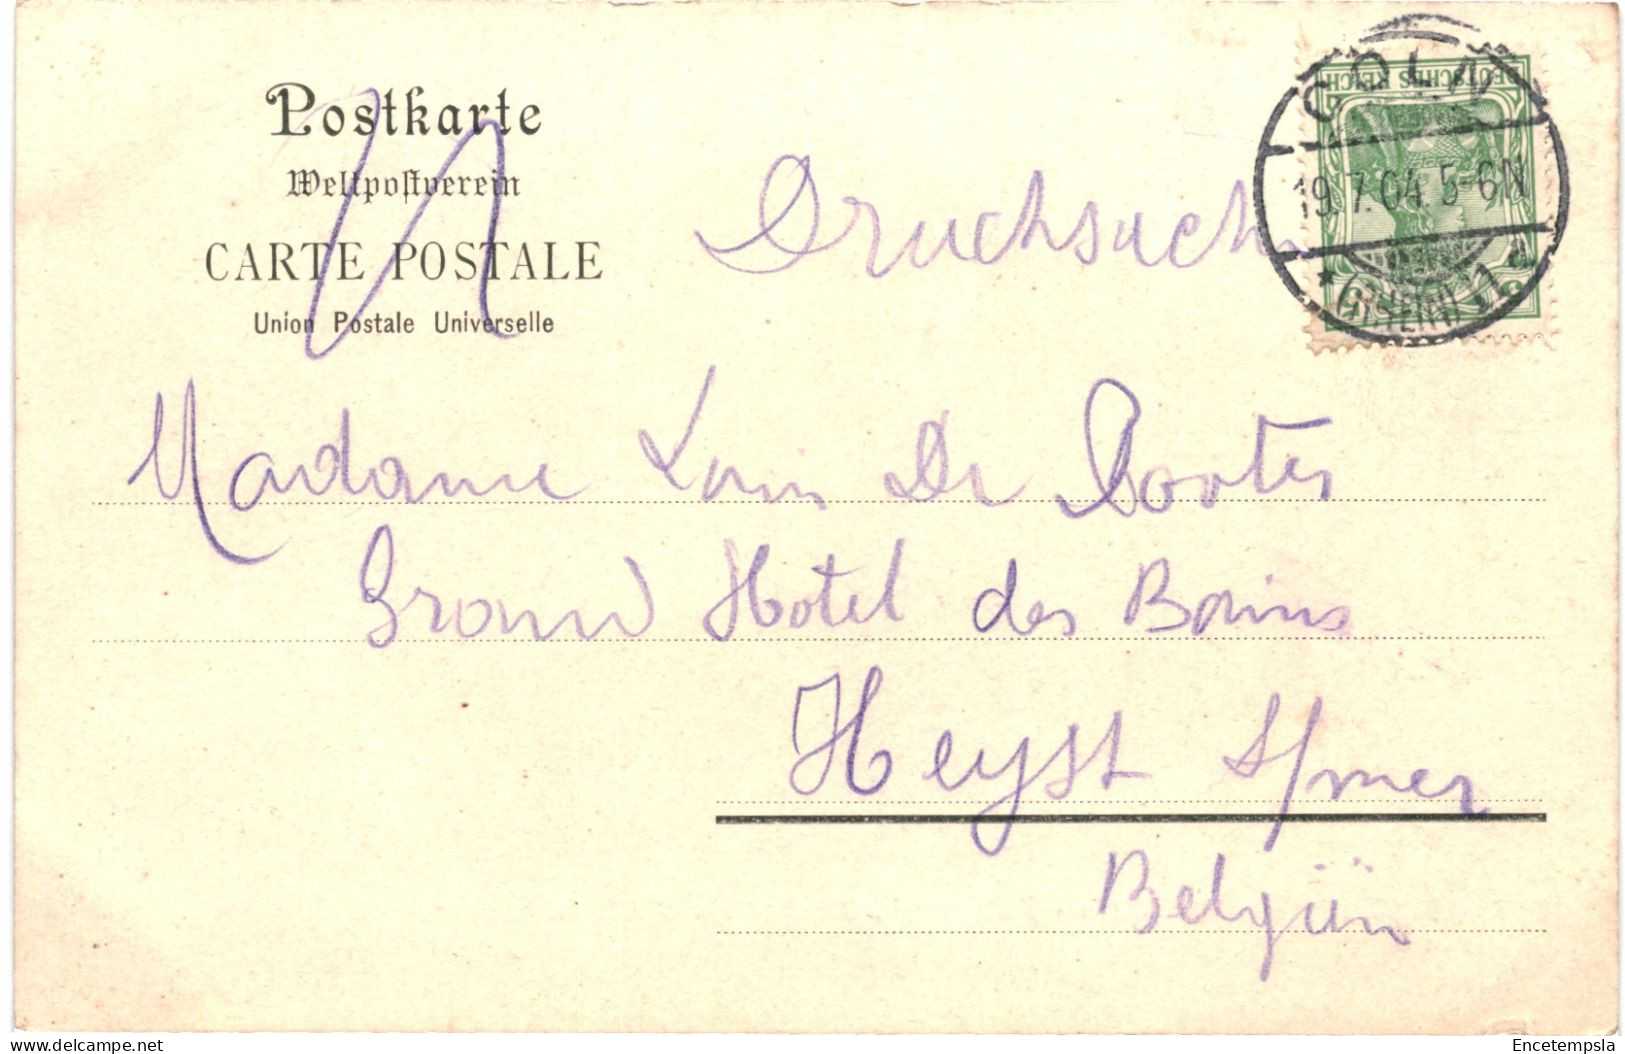 Postkarte
Weltpostverein
CARTE POSTALE
Union Postale Universelle
Drucksach
DEUTSCHES REICH
CÖLN
19.7.04. 5-6N
* (RHEIN) 1 a
Madame Louis De Pooter
Grand Hotel des Bains
Heyst s/mer
Belgiën
Encetempsla